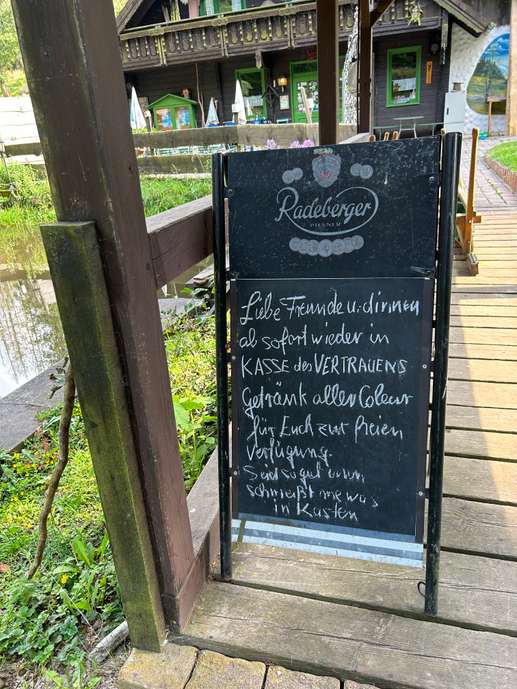 Radeberger
PILSNER
Liebe Freunde u. dinnen
ab sofort wieder in
KASSE des VERTRAUENS
Getränk aller Coleur
für Euch zur freien
Verfügung.
Seid so gut
schmeißt was
in Kasten